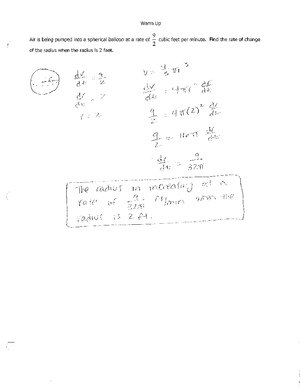 Warm Up
Air is being pumped into a spherical balloon at a rate of 9/2 cubic feet per minute. Find the rate of change
of the radius when the radius is 2 feet.
dV/dt = 9/2
dr/dt = ?
r = 2
V = 4/3 πr³
dV/dt = 4πr² dr/dt
9/2 = 4π(2)² dr/dt
9/2 = 16π dr/dt
dr/dt = 9/32π
The radius is increasing at a
rate of 9/32π ft/min when the
radius is 2 ft.